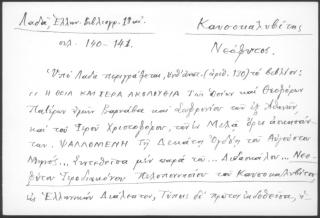 Λαδᾶ, Ἑλλην. Βιβλιογρ. 18 αἰ.
Καυσοκαλυβίτης
σελ. 140-141.
Νεόφυτος.
Ὑπὸ Λαδᾶ περιγράφεται, ὑπ' ἀριθ. (ἀριθ. 130) τὸ βιβλίον:
"Η ΘΕΙΑ ΚΑΙ ΙΕΡΑ ΑΚΟΛΟΥΘΙΑ Τῶν Ὁσίων καὶ Θεοφόρων
Πατέρων ἡμῶν Βαρνάβα καὶ Σωφρονίου τῶν ἐξ Ἀθηνῶν
καὶ τοῦ Ἱεροῦ Χριστοφόρου, τῶν ἐν Μελᾷ Ὄρει ἀσκησάν-
των. ΨΑΛΛΟΜΕΝΗ Τῇ Δεκάτῃ Ὀγδόῃ τοῦ Αὐγούστου
Μηνός... Συντεθεῖσα μὲν παρὰ τοῦ... Διδασκάλου... Νεο-
φύτου Ἱεροδιακόνου Πελοποννησίου τοῦ Καυσοκαλυβίτου
Ἑλληνικὴν Διάλεκτον, Τύποις δὲ πρῶτον ἐκδοθεῖσα,